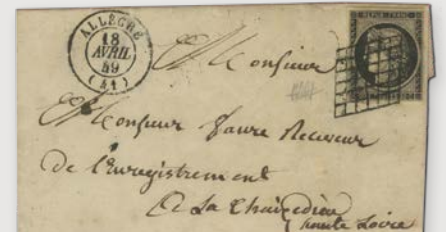 ALLÈGRE
18
AVRIL
49
(41)
REPUB. FRANC.
Monsieur
Monsieur Faure Receveur
de l'Enregistrement
A La Chaisedieu
haute Loire